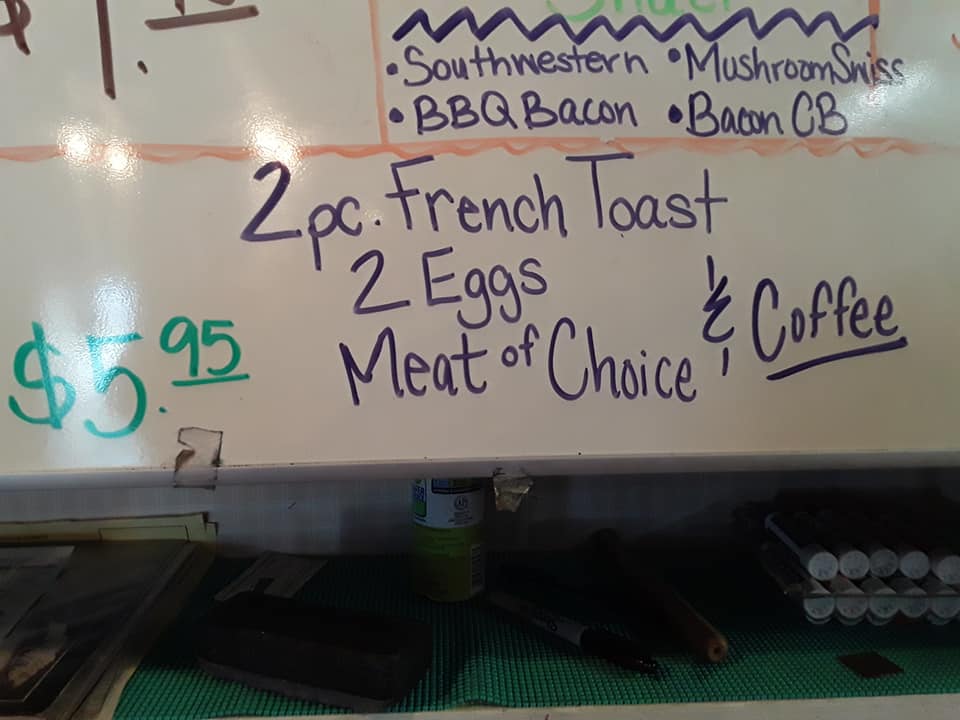 •Southwestern •Mushroom Swiss
•BBQ Bacon •Bacon CB
2pc. French Toast
2 Eggs
Meat of Choice & Coffee
$5.95